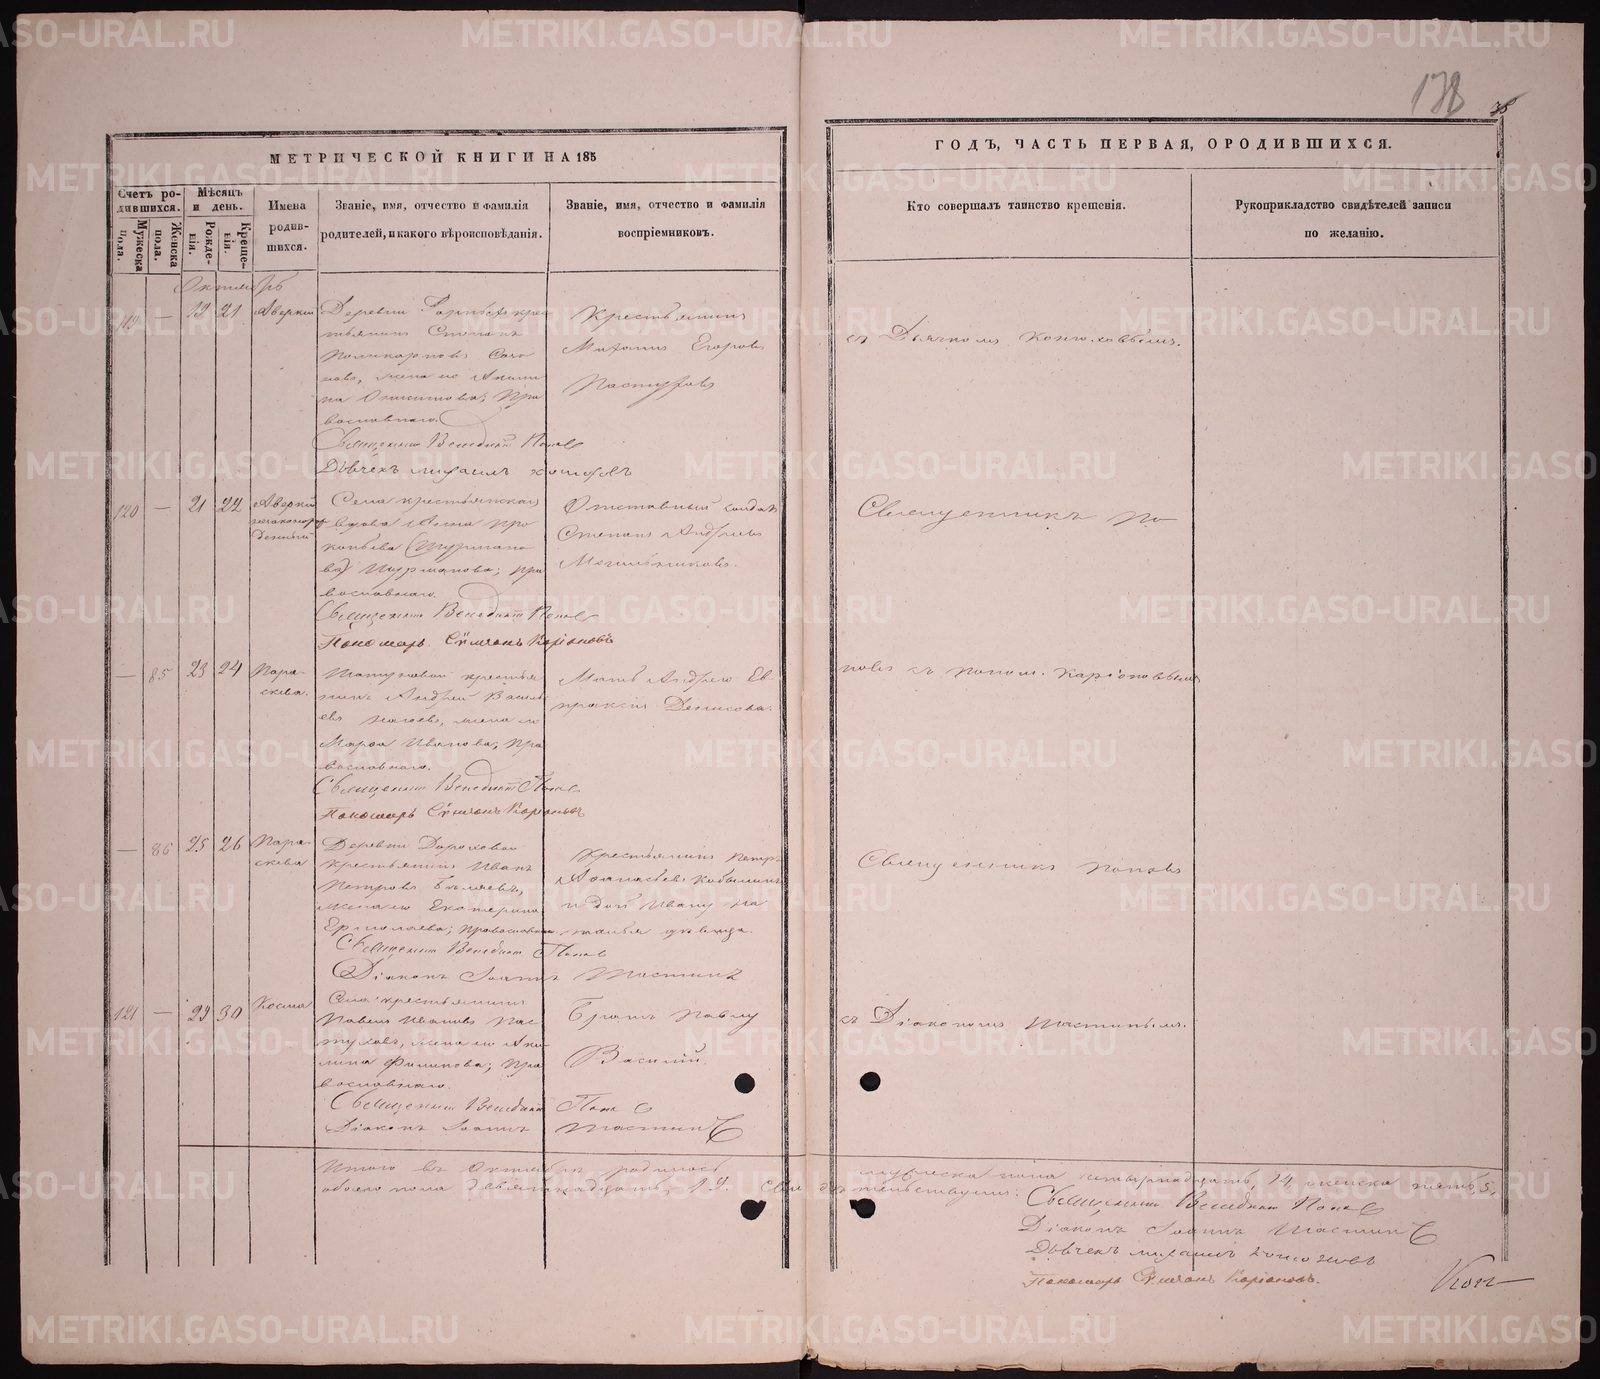 138
МЕТРИЧЕСКОЙ КНИГИ НА 185
ГОДЪ, ЧАСТЬ ПЕРВАЯ, О РОДИВШИХСЯ.
Счетъ ро-
дившихся.
Мужеска
пола.
Женска
пола.
Мѣсяцъ
и день.
Рожде-
нія.
Креще-
нія.
Имена
родив-
шихся.
Званіе, имя, отчество и фамилія
родителей, и какого вѣроисповѣданія.
Званіе, имя, отчество и фамилія
воспріемниковъ.
Кто совершалъ таинство крещенія.
Рукоприкладство свидѣтелей записи
по желанію.
Октябрь
119 — 19 21 Аверкій
Деревни кре
стьянинъ Степанъ
Поликарповъ
жена его Акили
на православнаго.
Священникъ Венедиктъ Поповъ
Дьячекъ Михаилъ
Крестьянинъ
Михаилъ Егоровъ
Пастуховъ
съ Дьячкомъ Конюховымъ.
120 — 21 22 Аверкій
незаконорож
денный
Села крестьянская
вдова Анна Про
копьева
православнаго.
Священникъ Венедиктъ Поповъ
Пономарь Сѵмеонъ Каріоновъ
Отставный солдатъ
Степанъ Андреевъ
Священникъ По
— 85 23 24 Пара-
скева.
крестья
нинъ Андрей Василь
евъ жена его
Марѳа Иванова, пра
вославнаго.
Священникъ Венедиктъ Поповъ
Пономарь Сѵмеонъ Каріоновъ
Мать Андрею Ев
праксія Денисова.
повъ съ Поном. Каріоновымъ
— 86 25 26 Пара-
скева
Деревни Дороховой
крестьянинъ Иванъ
Петровъ Бѣляевъ,
жена его Екатерина
Ермолаева; православн.
Священникъ Венедиктъ Поповъ
Діаконъ Іоаннъ Шастинъ
Крестьянинъ Петръ
Аѳанасьевъ Кобылинъ
и дочь Ивану На
талья дѣвица.
Священникъ Поповъ
121 — 29 30 Косма
Села крестьянинъ
Павелъ Ивановъ Пас
туховъ, жена его Аки
лина Филипова; пра
вославнаго.
Священникъ Венедиктъ Поповъ
Діаконъ Іоаннъ Шастинъ
Братъ Павлу
Василій.
съ Діакономъ Шастинымъ.
Итого въ Октябрѣ родилось мужеска пола четырнадцать, 14, женска пять, 5,
обоего пола девятнадцать, 19. Свидѣтельствуемъ: Священникъ Венедиктъ Поповъ
Діаконъ Іоаннъ Шастинъ
Дьячекъ Михаилъ Конюховъ
Пономарь Сѵмеонъ Каріоновъ.
METRIKI.GASO-URAL.RU